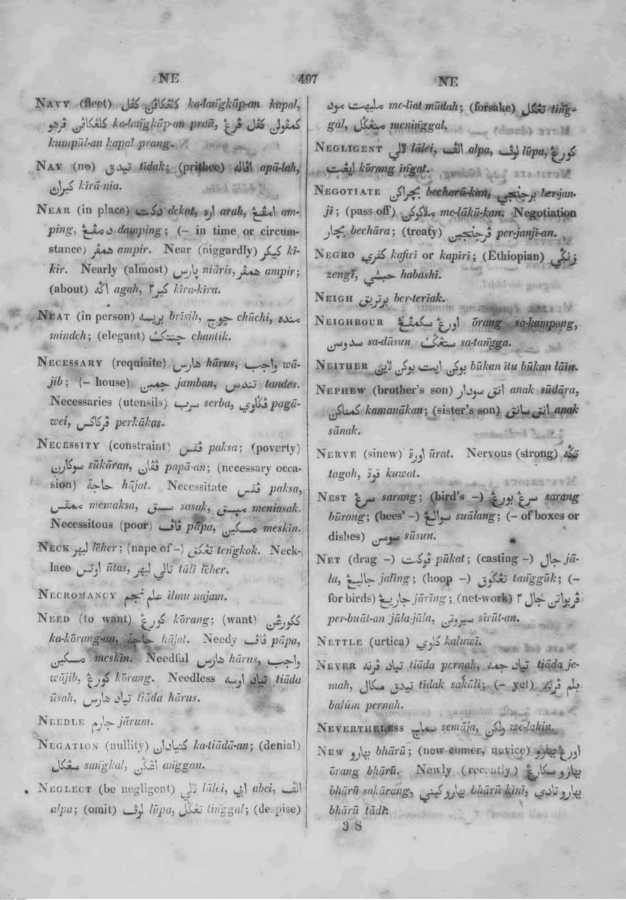 NE 497 NE
NAVY (fleet) كلڠكاڤن كڤل ka-laṅgkāp-an kapal,
كلڠكاڤن ڤراو ka-laṅgkāp-an praū, كمڤولن كڤل ڤرڠ
kumpūl-an kapal prang.
NAY (no) تيدق tidak; (prithee) اڤاله apā-lah,
كيران kīrā-nia.
NEAR (in place) دكت dekat, اره arah, امڤڠ am-
ping, دمڤڠ damping; (– in time or circum-
stance) همڤر ampir. Near (niggardly) كيكر kī-
kir. Nearly (almost) ڽارس niāris, همڤر ampir;
(about) اگه agah, كير٢ kira-kira.
NEAT (in person) بريسه brīsih, چوچي chūchi,
mindeh; (elegant) چنتك chantik.
NECESSARY (requisite) هارس hārus, واجب wā-
jib; (– house) جمبن jamban, تندس tandas.
Necessaries (utensils) سرب serba, ڤگاوي pagā-
wei, ڤركاكس perkākas.
NECESSITY (constraint) ڤقس paksa; (poverty)
سوكارن sūkāran, ڤڤان papā-an; (necessary occa-
sion) حاجة hājat. Necessitate ڤقس paksa,
ممقس memaksa, سسق sasak, مڽسق meniasak.
Necessitous (poor) ڤاڤ pāpa, مسكين meskīn.
NECK ليهر lēher; (nape of –) تڠكق teṅgkok. Neck-
lace اوتس ūtas, تالي ليهر tālī lēher.
NECROMANCY علم نجم ilmu najam.
NEED (to want) كورڠ kōrang; (want) ككورڠن
ka-kōrang-an, حاجة hājat. Needy ڤاڤ pāpa,
مسكين meskīn. Needful هارس hārus, واجب
wājib, كورڠ kōrang. Needless تياد اوسه tiāda
ūsah, تياد هارس tiāda hārus.
NEEDLE جارم jārum.
NEGATION (nullity) كتيادان ka-tiādā-an; (denial)
سڠكل saṅgkal, اڠڬن aṅggan.
NEGLECT (be negligent) لالي lālei, ابي abei, الڤ
alpa; (omit) لوڤ lūpa, تڠگل tiṅggal; (despise)
مليهت موده me-līat mūdah; (forsake) تڠگل tiṅg-
gal, منڠگل meninggal.
NEGLIGENT لالي lālei, الڤ alpa, لوڤ lūpa, كورڠ
ايڠت kōrang ingat.
NEGOTIATE بچراكن becharā-kan, برجنجي ber-jan-
ji; (pass off) ملاكوكن me-lākū-kan. Negotiation
بچار bechāra; (treaty) ڤرجنجين per-janji-an.
NEGRO كفري kafiri or kapiri; (Ethiopian) زنگي
zengī, حبشي habashī.
NEIGH برتريق ber-teriak.
NEIGHBOUR اورڠ سكمڤڠ ōrang sa-kampong,
سدوسن sa-dūsun, ستڠگ sa-tangga.
NEITHER بوكن ايت بوكن لاين būkan ītu būkan lāin.
NEPHEW (brother's son) انق سودار anak sūdāra,
كمناكن kamanākan; (sister's son) انق سانق anak
sānak.
NERVE (sinew) اورة ūrat. Nervous (strong) تگه
tagoh, قوة kuwat.
NEST سرڠ sarang; (bird's –) سرڠ بورڠ sarang
būrong; (bees' –) سوالڠ suālang; (– of boxes or
dishes) سوسن sūsun.
NET (drag –) ڤوكت pūkat; (casting –) جال jā-
la, جاليڠ jaling; (hoop –) تڠگوق taṅggūk; (–
for birds) جاريڠ jāring; (net-work) ڤربواتن جال ٢
per-buāt-an jāla-jāla, سيروتن sirūt-an.
NETTLE (urtica) كلاوي kaluwī.
NEVER تياد ڤرنه tiāda pernah, تياد جمه tiāda je-
mah, تيدق سكال tidak sakāli; (– yet) بلم ڤرنه
balūm pernah.
NEVERTHELESS سماج semāja, ولكن we-lakin.
NEW بهارو bhārū; (new comer, novice) اورڠ بهارو
ōrang bhārū. Newly (recently) بهارو سكارڠ
bhārū sakārang, بهارو كيني bhārū kīni, بهارو تادي
bhārū tādi.
3 S